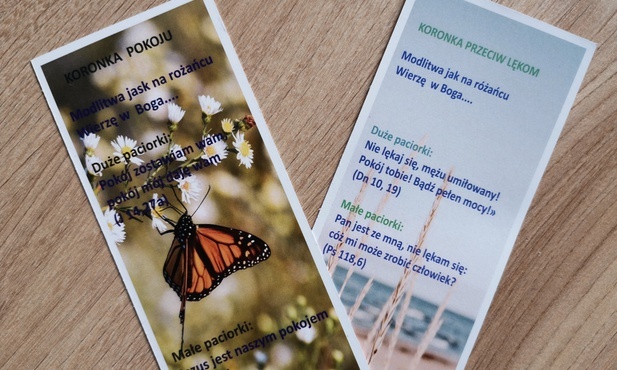 KORONKA POKOJU
Modlitwa jask na rożańcu
Wierzę w Boga....
Duże paciorki:
Pokój zostawiam wam,
pokój mój daję wam
(J 14,27a)
Małe paciorki:
jest naszym pokojem
KORONKA PRZECIW LĘKOM
Modlitwa jak na różańcu
Wierzę w Boga....
Duże paciorki:
Nie lękaj się, mężu umiłowany!
Pokój tobie! Bądź pełen mocy!»
(Dn 10, 19)
Małe paciorki:
Pan jest ze mną, nie lękam się:
cóż mi może zrobić człowiek?
(Ps 118,6)